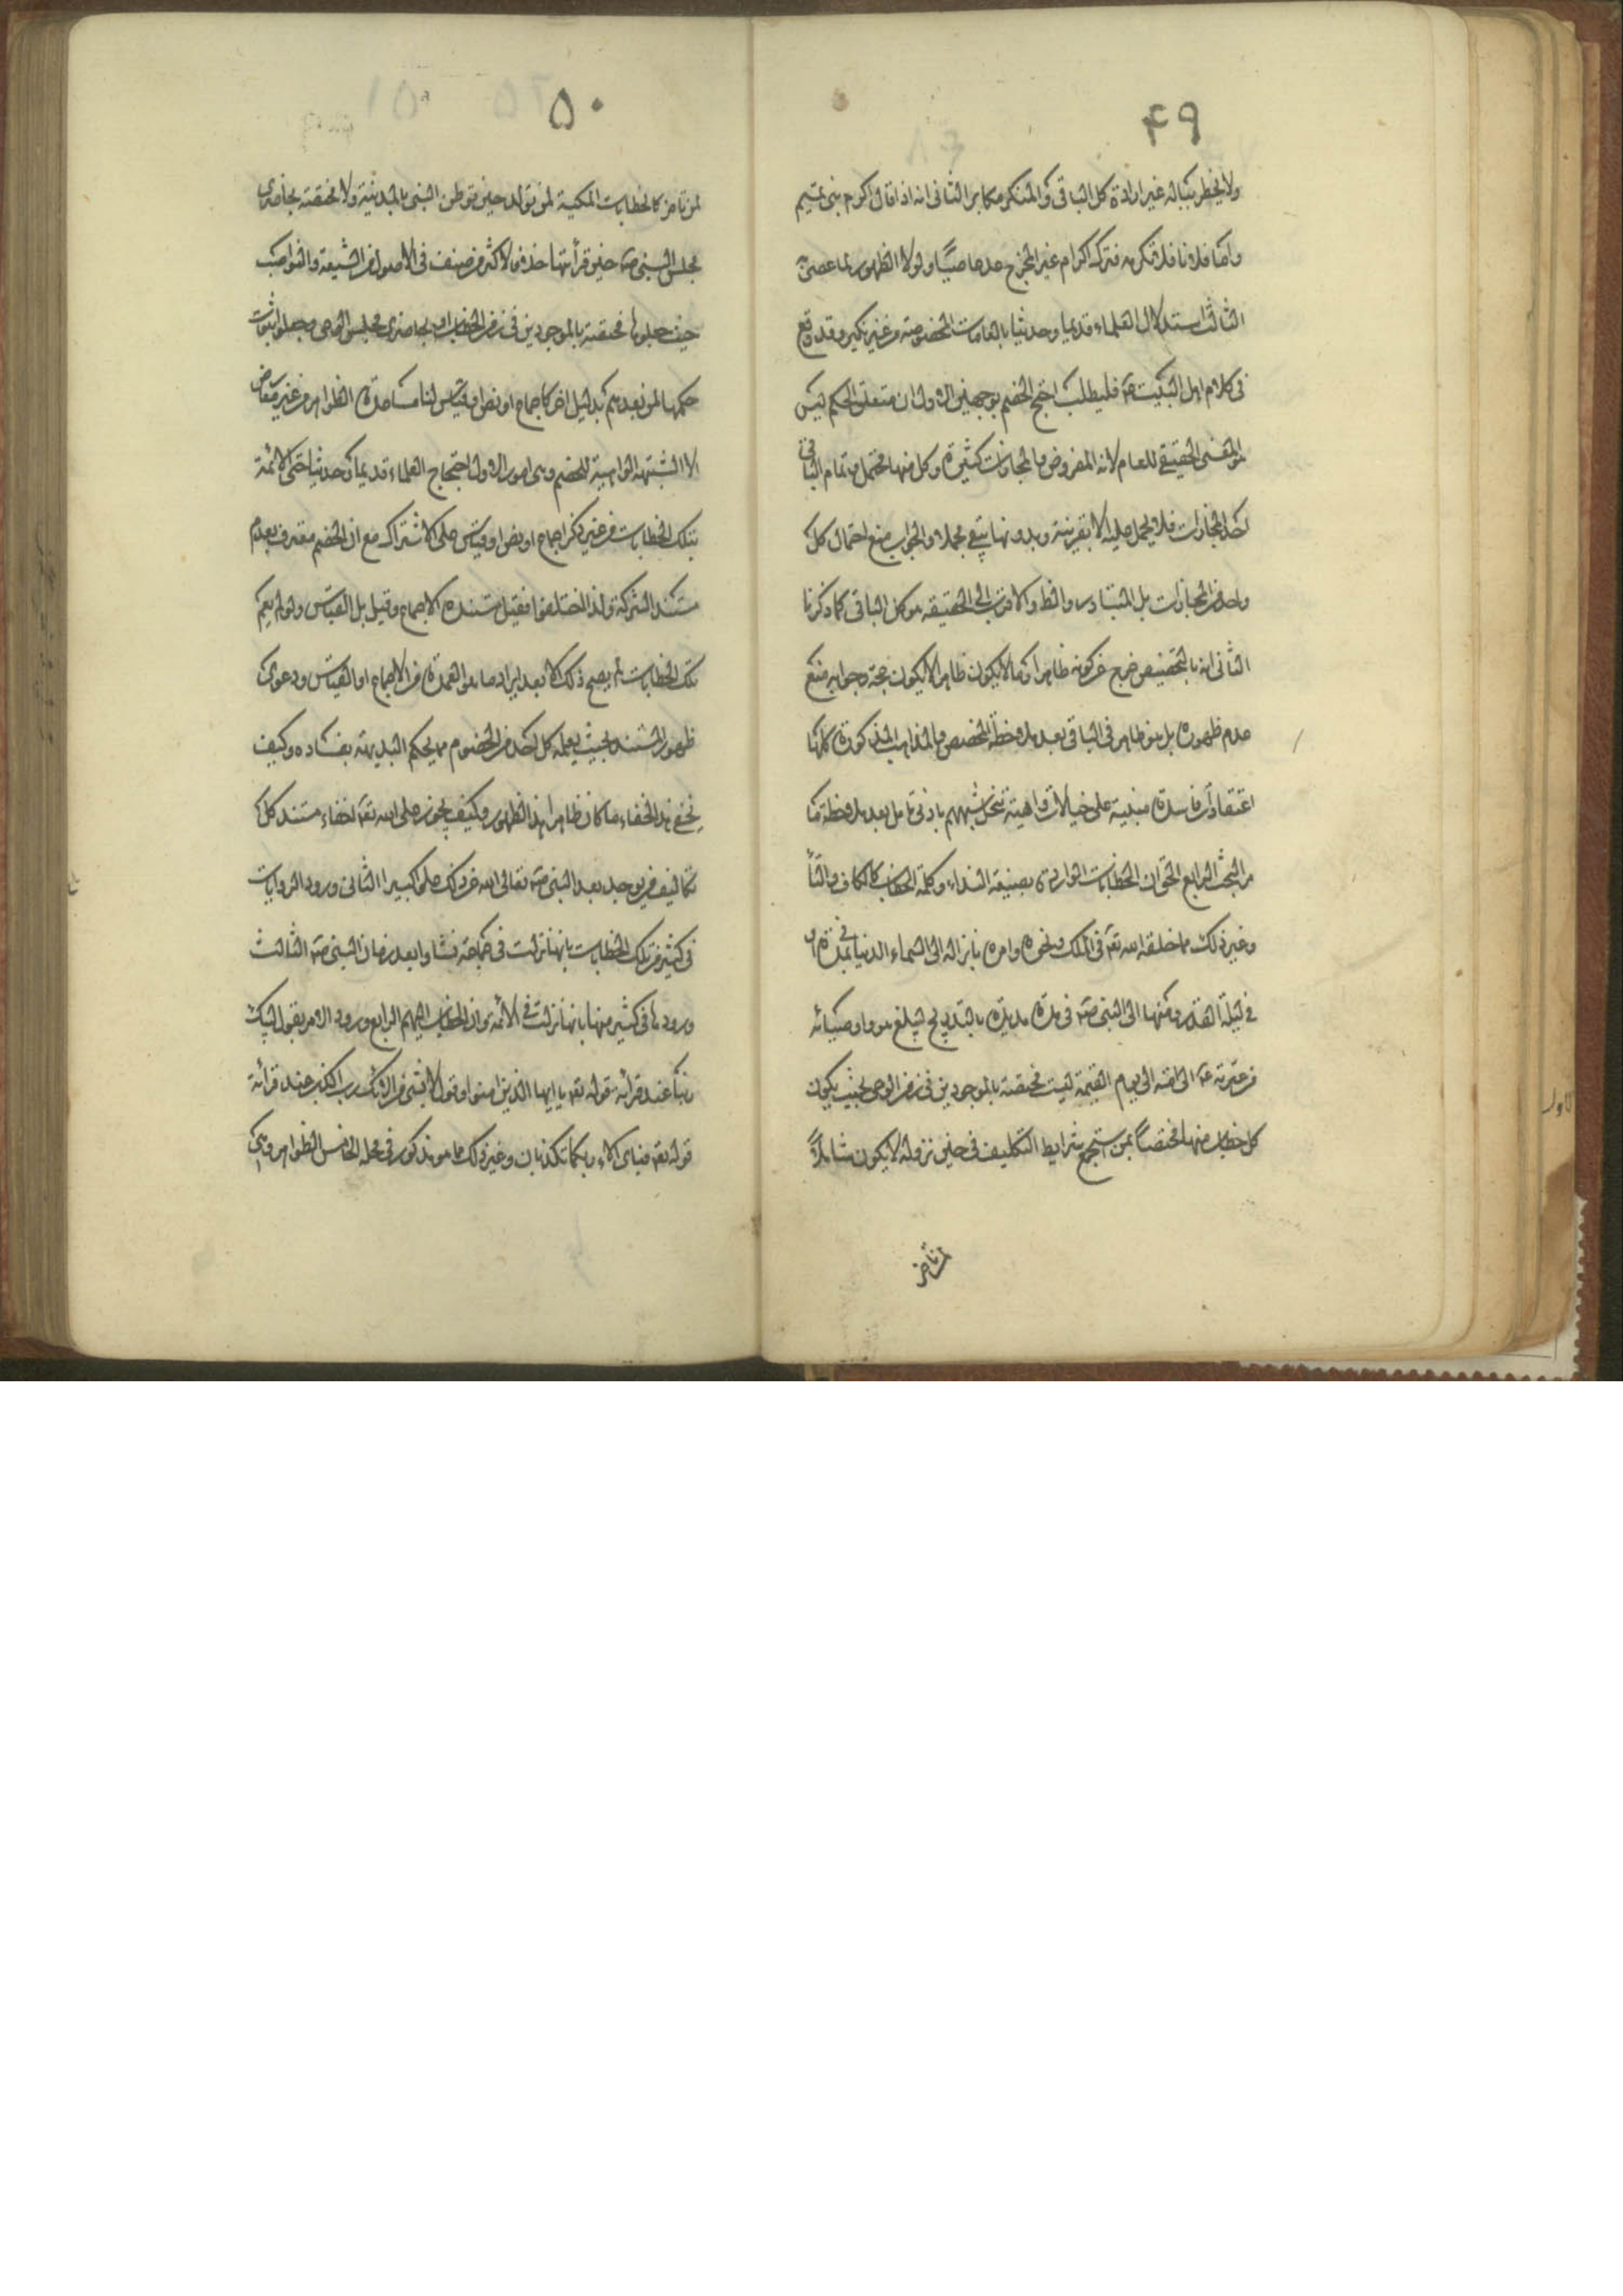 ٤٩
ولا يخطر بباله غير ارادة كل الباقي والمنكر مكابر الثاني انه اذا قال اكرم بني تميم
واما فلانا فلا تكرمه فترك اكرام غير المخرج عد عاصيا ولولا الظهور لما عصى
الثالث استدلال العلماء قديما وحديثا بالعامات المخصوصة من غير نكير وقد وقع
في كلام اهل البيت فليطلب احتج الخصم بوجهين الاول ان متعلق الحكم ليس
هو المعنى الحقيقي للعام لانه المفروض والمجازات كثيرة وكل منها محتمل وتمام الباقي
احد المجازات فلا يحمل عليه الا بقرينة وبدونها يبقى مجملا والجواب منع احتمال كل
واحد من المجازات بل المتبادر والظ والاقرب الى الحقيقه هو كل الباقي كما ذكرنا
الثاني انه بالتخصيص خرج عن كونه ظاهرا وما لا يكون ظاهرا لا يكون حجة وجوابه منع
عدم ظهوره بل هو ظاهر في الباقي بعد ملاحظة المخصص والمذاهب المذكورة كلها
اعتقادات فاسدة مبنية على خيالات واهية تنحل شبههم بادنى تامل بعد ملاحظة ما
مر البحث الرابع الحق ان الخطابات الواردة بصيغة النداء وكلمة الخطاب كالكاف والتاء
وغير ذلك مما خلقه الله تعه في الملك ونحوه وامره بانزاله الى السماء الدنيا في مدة او
في ليلة القدر ومنها الى النبي صه في مدة مديدة بالتدريج ليبلغ هو واوصيائه
من عترته عه الى امته الى يوم القيمة ليست مختصة بالموجودين في زمن الوحي بحيث يكون
كل خطاب منها مختصا بمن استجمع شرايط التكليف في حين نزوله لا يكون شاملا
لمن تاخر
٥٠
لمن تاخر كالخطابات المكية لمن تولد حين توطن النبي بالمدينة ولا مختصة بحاضري
مجلس النبي صه حين قرأتها خلافا لاكثر من صنف في الاصول من الشيعة والنواصب
حيث جعلوها مختصة بالموجودين في زمن الخطاب او بحاضري مجلس الوحي وجعلوا ثبوت
حكمها لمن بعدهم بدليل اخر كاجماع او نص او قياس لنا مساعدة الظواهر من غير معارض
الا الشبهة الواهية للخصم وهي امور الاول احتجاج العلماء قديما وحديثا حتى الائمة
بتلك الخطابات من غير ذكر اجماع او نص او قياس على الاشتراك مع ان الخصم معترف بعدم
مستند الشركة ولذا اختلفوا فقيل مستنده الاجماع وقيل بل القياس ولو لم يعم
تلك الخطابات لم يصح ذلك الا بعد ايراد ما هو العمدة من الاجماع او القياس ودعوى
ظهور المستند بحيث يعلمه كل احد من الخصوم مما يحكم البديهة بفساده وكيف
يخفى هذا الخفاء ما كان ظاهرا هذا الظهور وكيف يجوز على الله تعه اخفاء مستند كل
تكاليف من يوجد بعد النبي صه تعالى الله عن ذلك علوا كبيرا الثاني ورود الروايات
في كثير من تلك الخطابات بانها نزلت في جماعة نشاوا بعد زمان النبي صه الثالث
ورودها في كثير منها بانها نزلت في الائمة وان الخطاب اليهم الرابع ورود الامر بقول لبيك
ربنا عند قرائة قوله تعه يا ايها الذين امنوا وقول لا بشئ من الائك رب اكذب عند قرائة
قوله تعه فباي الاء ربكما تكذبان وغير ذلك مما هو مذكور في محله الخامس الظواهر وهي